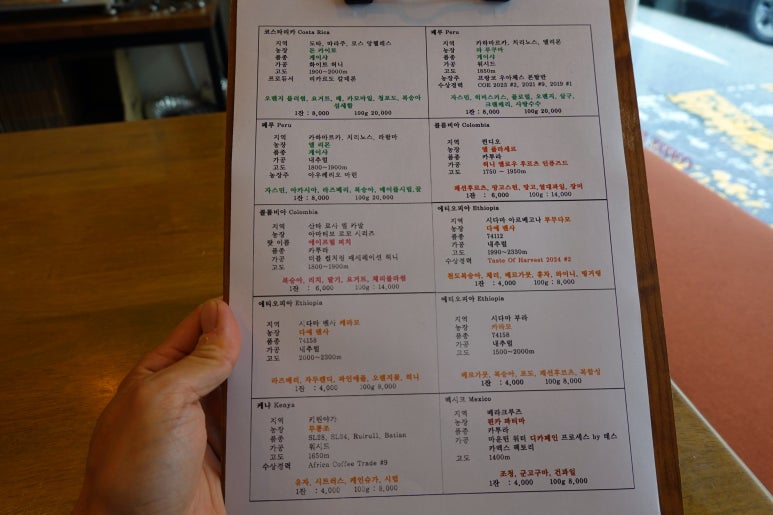 코스타리카 Costa Rica
지역 도타, 따라주, 로스 앙헬레스
농장 돈 카이토
품종 게이샤
가공 화이트 허니
고도 1900~2000m
프로듀서 리카르도 칼데론
오렌지 블러썸, 요거트, 배, 카모마일, 청포도, 복숭아
섬세함
1잔 : 8,000 100g 20,000
페루 Peru
지역 카하마르카, 치리노스, 엘리몬
농장
품종 게이샤
가공 워시드
고도 1850m
농장주
수상경력 COE 2023 #2, 2021 #9, 2019 #1
자스민, 히비스커스, 플로럴, 오렌지, 살구,
크랜베리, 사탕수수
1잔 : 8,000 100g 20,000
페루 Peru
지역 카하마르카, 치리노스, 라팔마
농장 엘 리몬
품종 게이샤
가공 내추럴
고도 1800~1900m
농장주 아우렐리오 마린
자스민, 아카시아, 라즈베리, 복숭아, 메이플시럽, 꿀
1잔 : 8,000 100g 20,000
콜롬비아 Colombia
지역 퀸디오
농장 엘 플라세르
품종 카투라
가공 허니 옐로우 후르츠 인퓨즈드
고도 1750 ~ 1950m
패션후르츠, 망고스틴, 망고, 열대과일, 장미
1잔 : 6,000 100g : 14,000
콜롬비아 Colombia
지역 산타 로사 델 카발
농장 아마티보 로꼬 시리즈
랏 이름 에이프릴 피치
품종 카투라
가공 더블 컬처링 매서레이션 허니
고도 1800~1900m
복숭아, 리치, 딸기, 요거트, 체리블라썸
1잔 : 6,000 100g : 14,000
에티오피아 Ethiopia
지역 시다마 아르베고나 부푸다모
농장 다예 벤사
품종 74112
가공 내추럴
고도 1990~2330m
수상경력 Taste Of Harvest 2024 #2
천도복숭아, 체리, 베르가못, 홍차, 와이니, 빙거텀
1잔 : 4,000 100g : 8,000
에티오피아 Ethiopia
지역 시다마 벤사 케라모
농장 다예 벤사
품종 74158
가공 내추럴
고도 2000~2300m
라즈베리, 자두캔디, 파인애플, 오렌지꽃, 허니
1잔 : 4,000 100g 8,000
에티오피아 Ethiopia
지역 시다마 부라
농장 카라모
품종 74158
가공 내추럴
고도 1500~2000m
베르가못, 복숭아, 포도, 패션후르츠, 복합성
1잔 : 4,000 100g 8,000
케냐 Kenya
지역 키린야가
농장 무봉조
품종 SL28, SL34, Ruirull, Batian
가공 워시드
고도 1650m
수상경력 Africa Coffee Trade #9
유자, 시트러스, 케인슈가, 시럽
1잔 : 4,000 100g 8,000
멕시코 Mexico
지역 베라크루즈
농장 핀카 파티마
품종 카투라
가공 마운틴 워터 디카페인 프로세스 by 데스
카맥스 팩토리
고도 1400m
조청, 군고구마, 건과일
1잔 : 4,000 100g 8,000